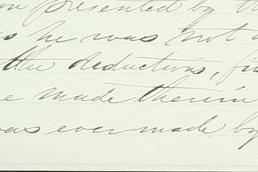 presented by
he was not
the deductions,
made therein
was ever made by